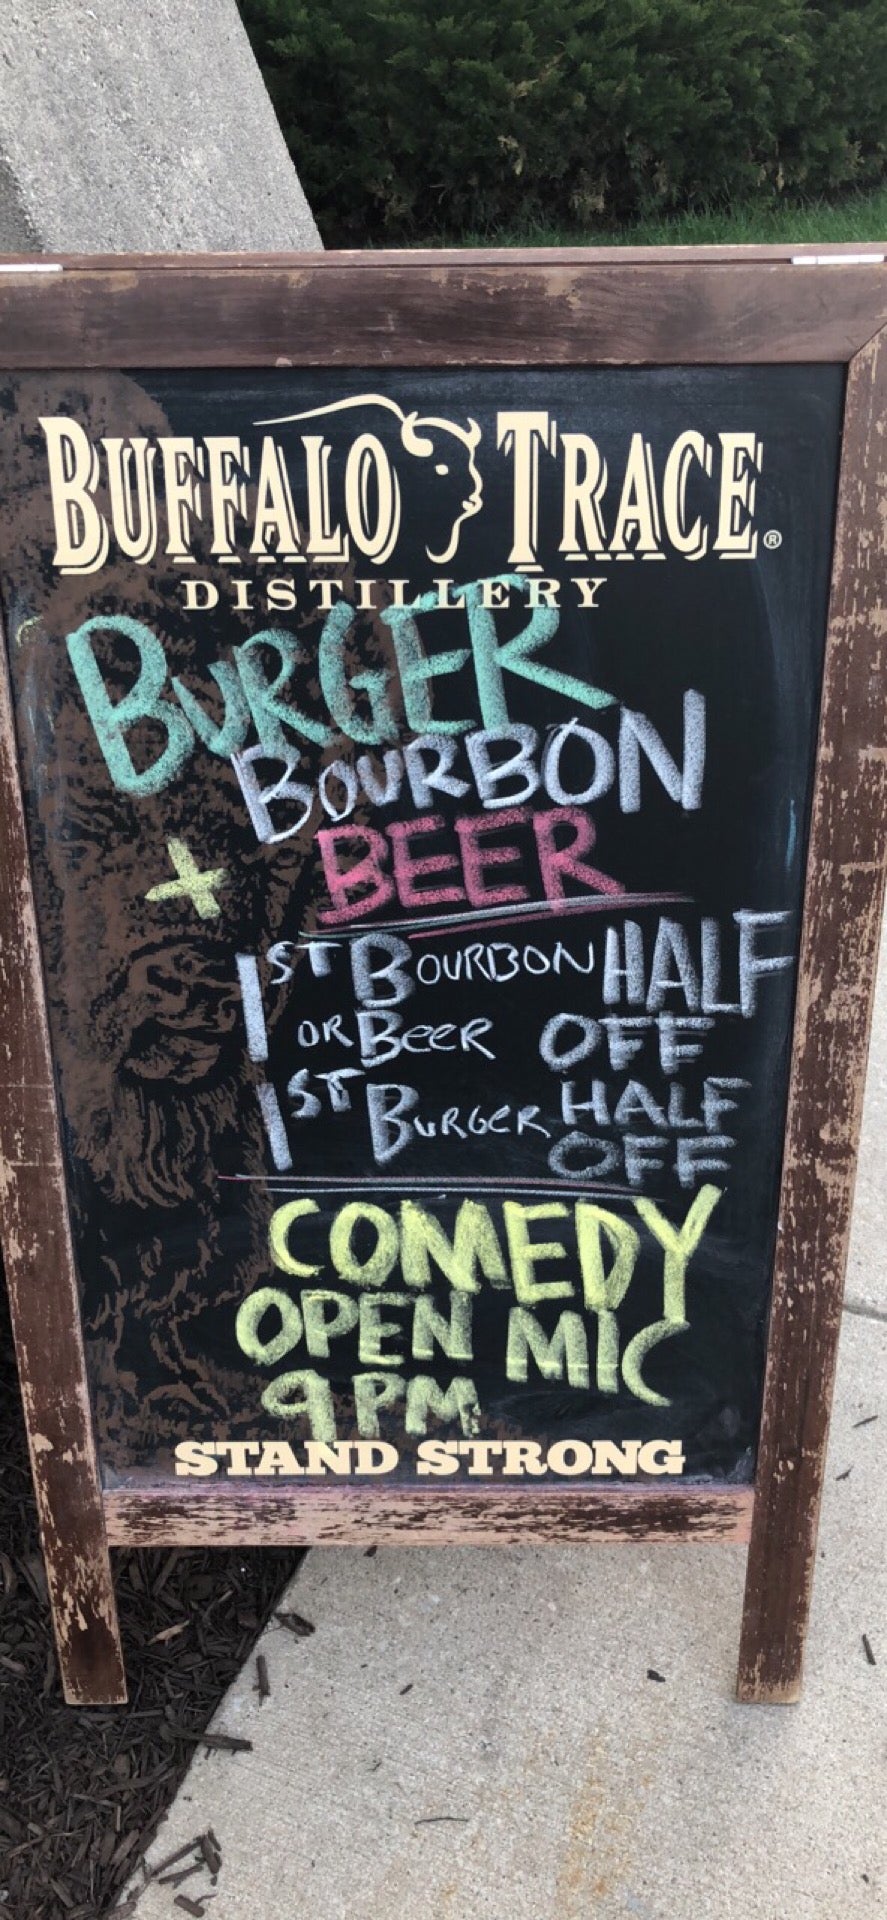 BUFFALO TRACE®
DISTILLERY
BURGER
BOURBON
+ BEER
1ST BOURBON HALF
OR BEER OFF
1ST BURGER HALF
OFF
COMEDY
OPEN MIC
9 PM
STAND STRONG